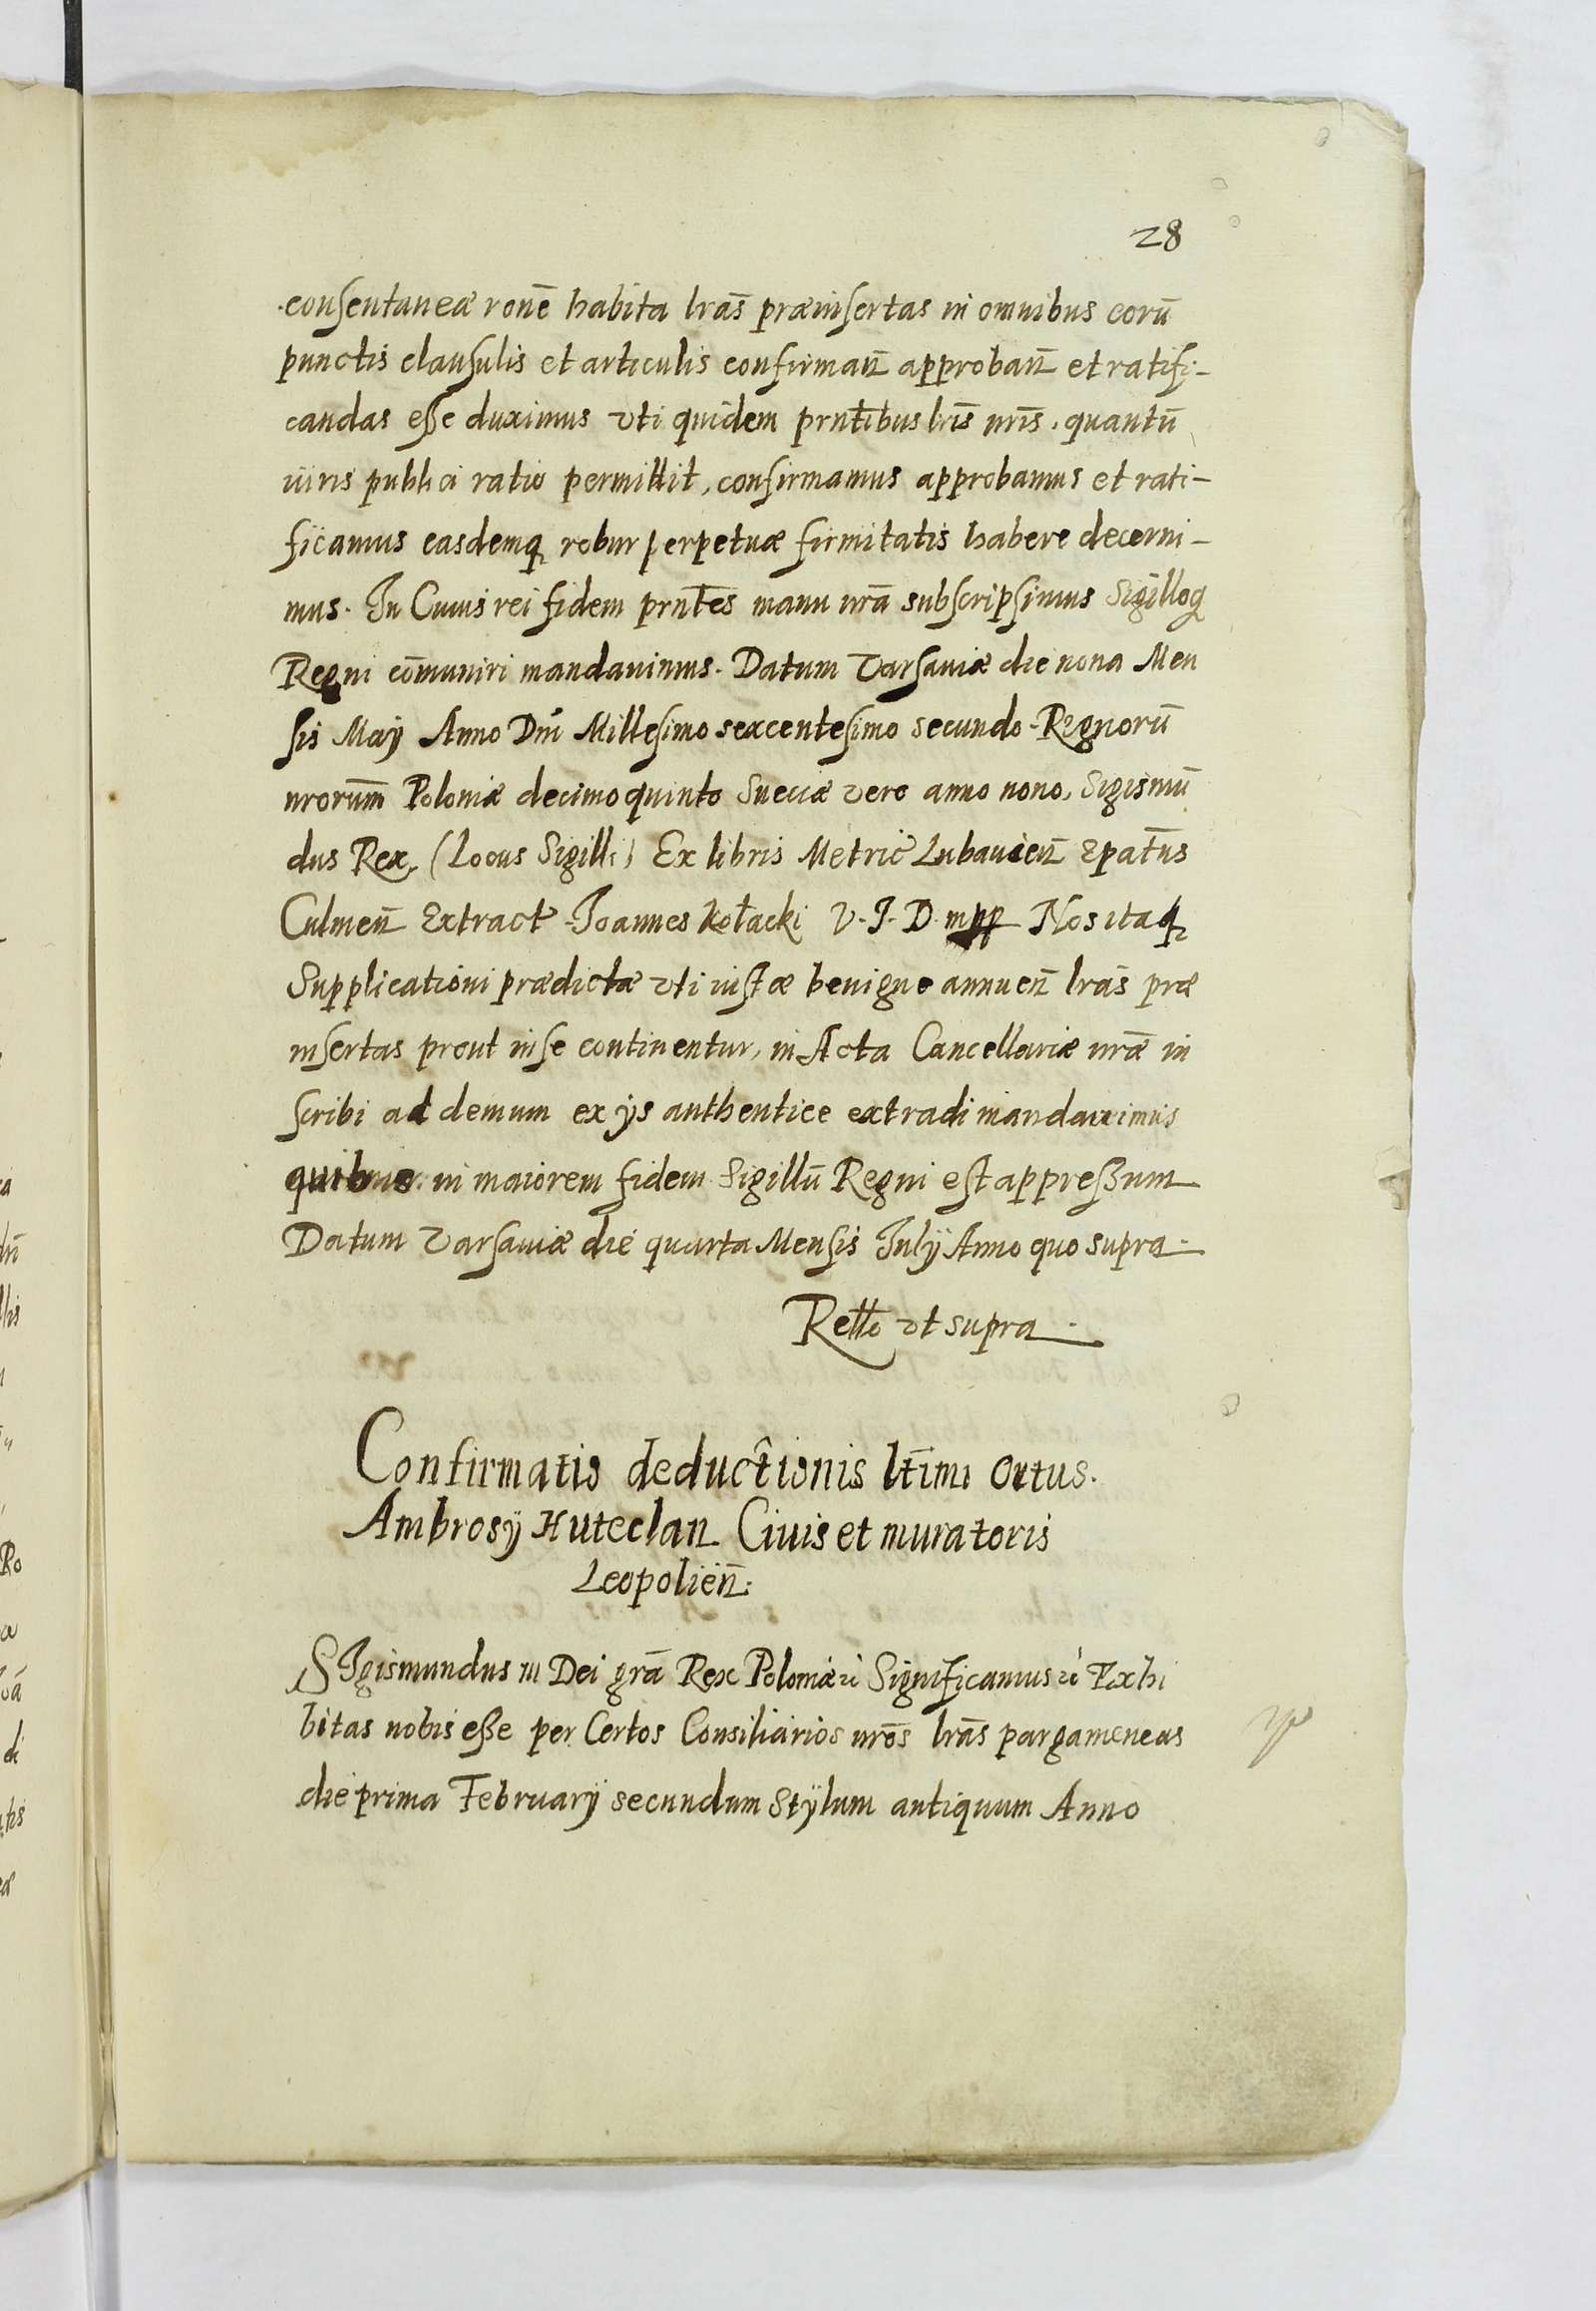 28
consentaneæ ronē habita lrās præinsertas in omnibus eorū
punctis clausulis et articulis confirman̄ approban̄ et ratifi-
candas esse duximus vti quidem prntibus lris nris. quantū
iuris publici ratio permittit, confirmamus approbamus et rati-
ficamus easdemq robur perpetuæ firmitatis habere decerni-
mus. In Cuius rei fidem prntes manu nrā subscripsimus Sigilloq
Regni cōmuniri mandauimus. Datum Varsauiæ die nona Men
sis Maÿ Anno Dni Millesimo sexcentesimo secundo Regnorū
nrorum Poloniæ decimo quinto Sueciæ vero anno nono, Sigismū
dus Rex, (Locus Sigilli) Ex libris Metric Lubauien̄ Epatus
Culmen̄ Extract Joannes Kołacki V. J. D. mpp Nos itaq
Supplicationi prædictæ vti iustæ benigne annuen̄ lrās præ
insertas prout in se continentur, in Acta Cancellariæ nræ in
scribi ac demum ex ÿs authentice extradi mandauimus
quibus in maiorem fidem Sigillū Regni est appressum
Datum Varsauiæ die quarta Mensis Julÿ Anno quo supra
Rełło vt supra
Confirmatio deductionis ltimi Ortus.
Ambrosÿ Huteclan Ciuis et muratoris
Leopolien̄.
SIgismundus III Dei grā Rex Poloniæ ꝛc Significamus ꝛc Exhi
bitas nobis esse per Certos Consiliarios nrōs lrās pargameneas
die prima Februarÿ secundum Stÿlum antiquum Anno